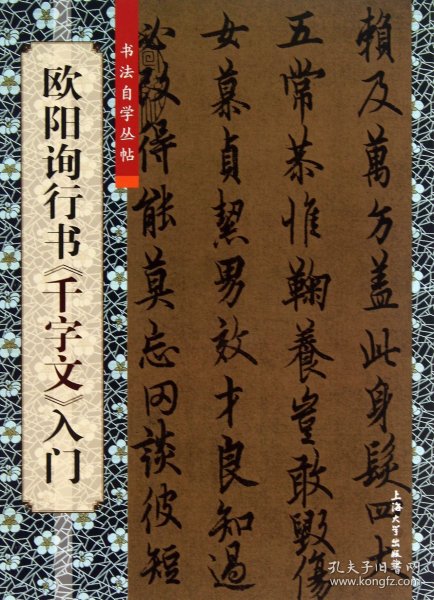 书法自学丛帖
欧阳询行书《千字文》入门
賴及萬方蓋此身髮四大
五常恭惟鞠養豈敢毀傷
女慕貞絜男效才良知過
必改得能莫忘罔談彼短
上海大学出版社
孔夫子旧书网
www.kongfz.com